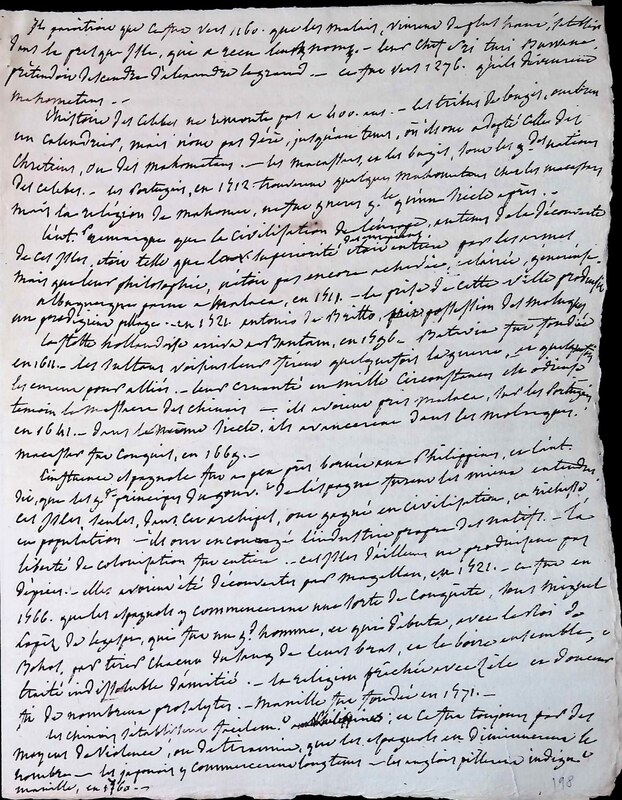 il paroitroit que ce fut vers 1160. que les malais, vinrent de plus haut, s'établir
dans la presqu'isle, qui a reçu leur nom. - leur chef Sri turi Buwana
prétendoit descendre d'alexandre le grand. - ce fut vers 1276. qu'ils devinrent
mahometans. -
L'histoire des Celebes ne remonte pas a 400. ans. - les tribus de bugis, ont bien
un calendrier, mais n'ont pas d'ère, jusqu'au tems, où ils ont adopté celle des
chretiens, ou des mahometans. - les macassars, et les bugis, sont les gdes nations
des Celebes. - les Portugais, en 1512 trouverent quelques mahometans chez les macassars
mais la religion de mahomet, ne fut guerres gle qu'un siecle après. -
L'aut. remarque que la civilisation de l'europe, au tems de la découverte
de ces isles, etoit telle que leur superiorité etoit entiere par les armes
mais que leur philosophie, n'étoit pas encore eclairée, généreuse.
albuquerque parut a Malaca, en 1511. - la prise de cette ville produisit
un prodigieux pillage. - en 1521 antonio de Britto, prit possession des moluques
La flotte hollandoise arriva a Bantam, en 1596. Batavia fut fondée
en 1611. - les sultans voisins leur firent quelquefois la guerre, et quelquefois
les eurent pour alliés. - leur cruauté en mille circonstances est odieuse
temoin le massacre des chinois - ils avoient pris malaca, sur les Portugais
en 1641. - dans le même siecle, ils avancerent dans les molusques.
macassar fut conquis, en 1669. -
L'influence espagnole fut a peu près bornée aux Philippines, et l'aut.
dit, que les gds principes du gouvt de l'espagne furent les mieux entendus.
ces isles, seules, dans cet archipel, ont gagné en civilisation, en richesse
en population - ils ont encouragé l'industrie propre des natifs. - la
liberté de colonisation fut entiere. - ces isles d'ailleurs ne produisent pas
d'épices. - elles avoient été découvertes par magellan, en 1521. - ce fut en
1566. que les espagnols y commencerent une sorte de conquête, sous Miguel
Lopez de Legaspe, qui fut un gd homme, et qui debuta, avec le Roi de
Bohol, par tirer chacun du sang de leurs bras, et le boire ensemble,
traité indissoluble d'amitié. - la religion prêchée avec zèle et douceur
fit de nombreux proselytes. - Manille fut fondée en 1571. -
les chinois s'établissent facilemt et ce fut toujours par des
moyens de violence, ou de tirannie, que les espagnols en diminuerent le
nombre - les japonois y commercerent longtems - les anglois pillerent indignt
manille, en 1760. -
198